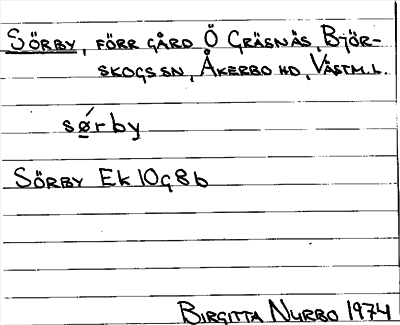 SÖRBY, FÖRR GÅRD Ö GRÄSNÄS, BJÖR-
SKOGS SN, ÅKERBO HD, VÄSTM. L.
sǿ̱rby
SÖRBY EK 10g8b
BIRGITTA NURBO 1974